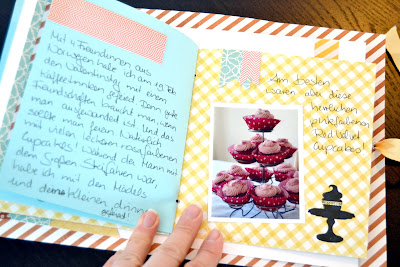 Mit 4 Freundinnen aus
Norwegen habe ich am 19. Feb
den Valentinstag mit einem
Kaffeetrinken gefeiert. Denn gute
Freundschaften braucht man, wenn
man ausgewandert ist und das
sollte man feiern. Natürlich
mit vielen kleinen rosa farbenen
Cupcakes! Während die Mann mit
dem Großen Skifahren war,
habe ich mit den Mädels
und dem kleinen drin
gefeiert!
Am besten
waren aber diese
herrlichen
pinkfarbenen
Red Velvet
Cupcakes!